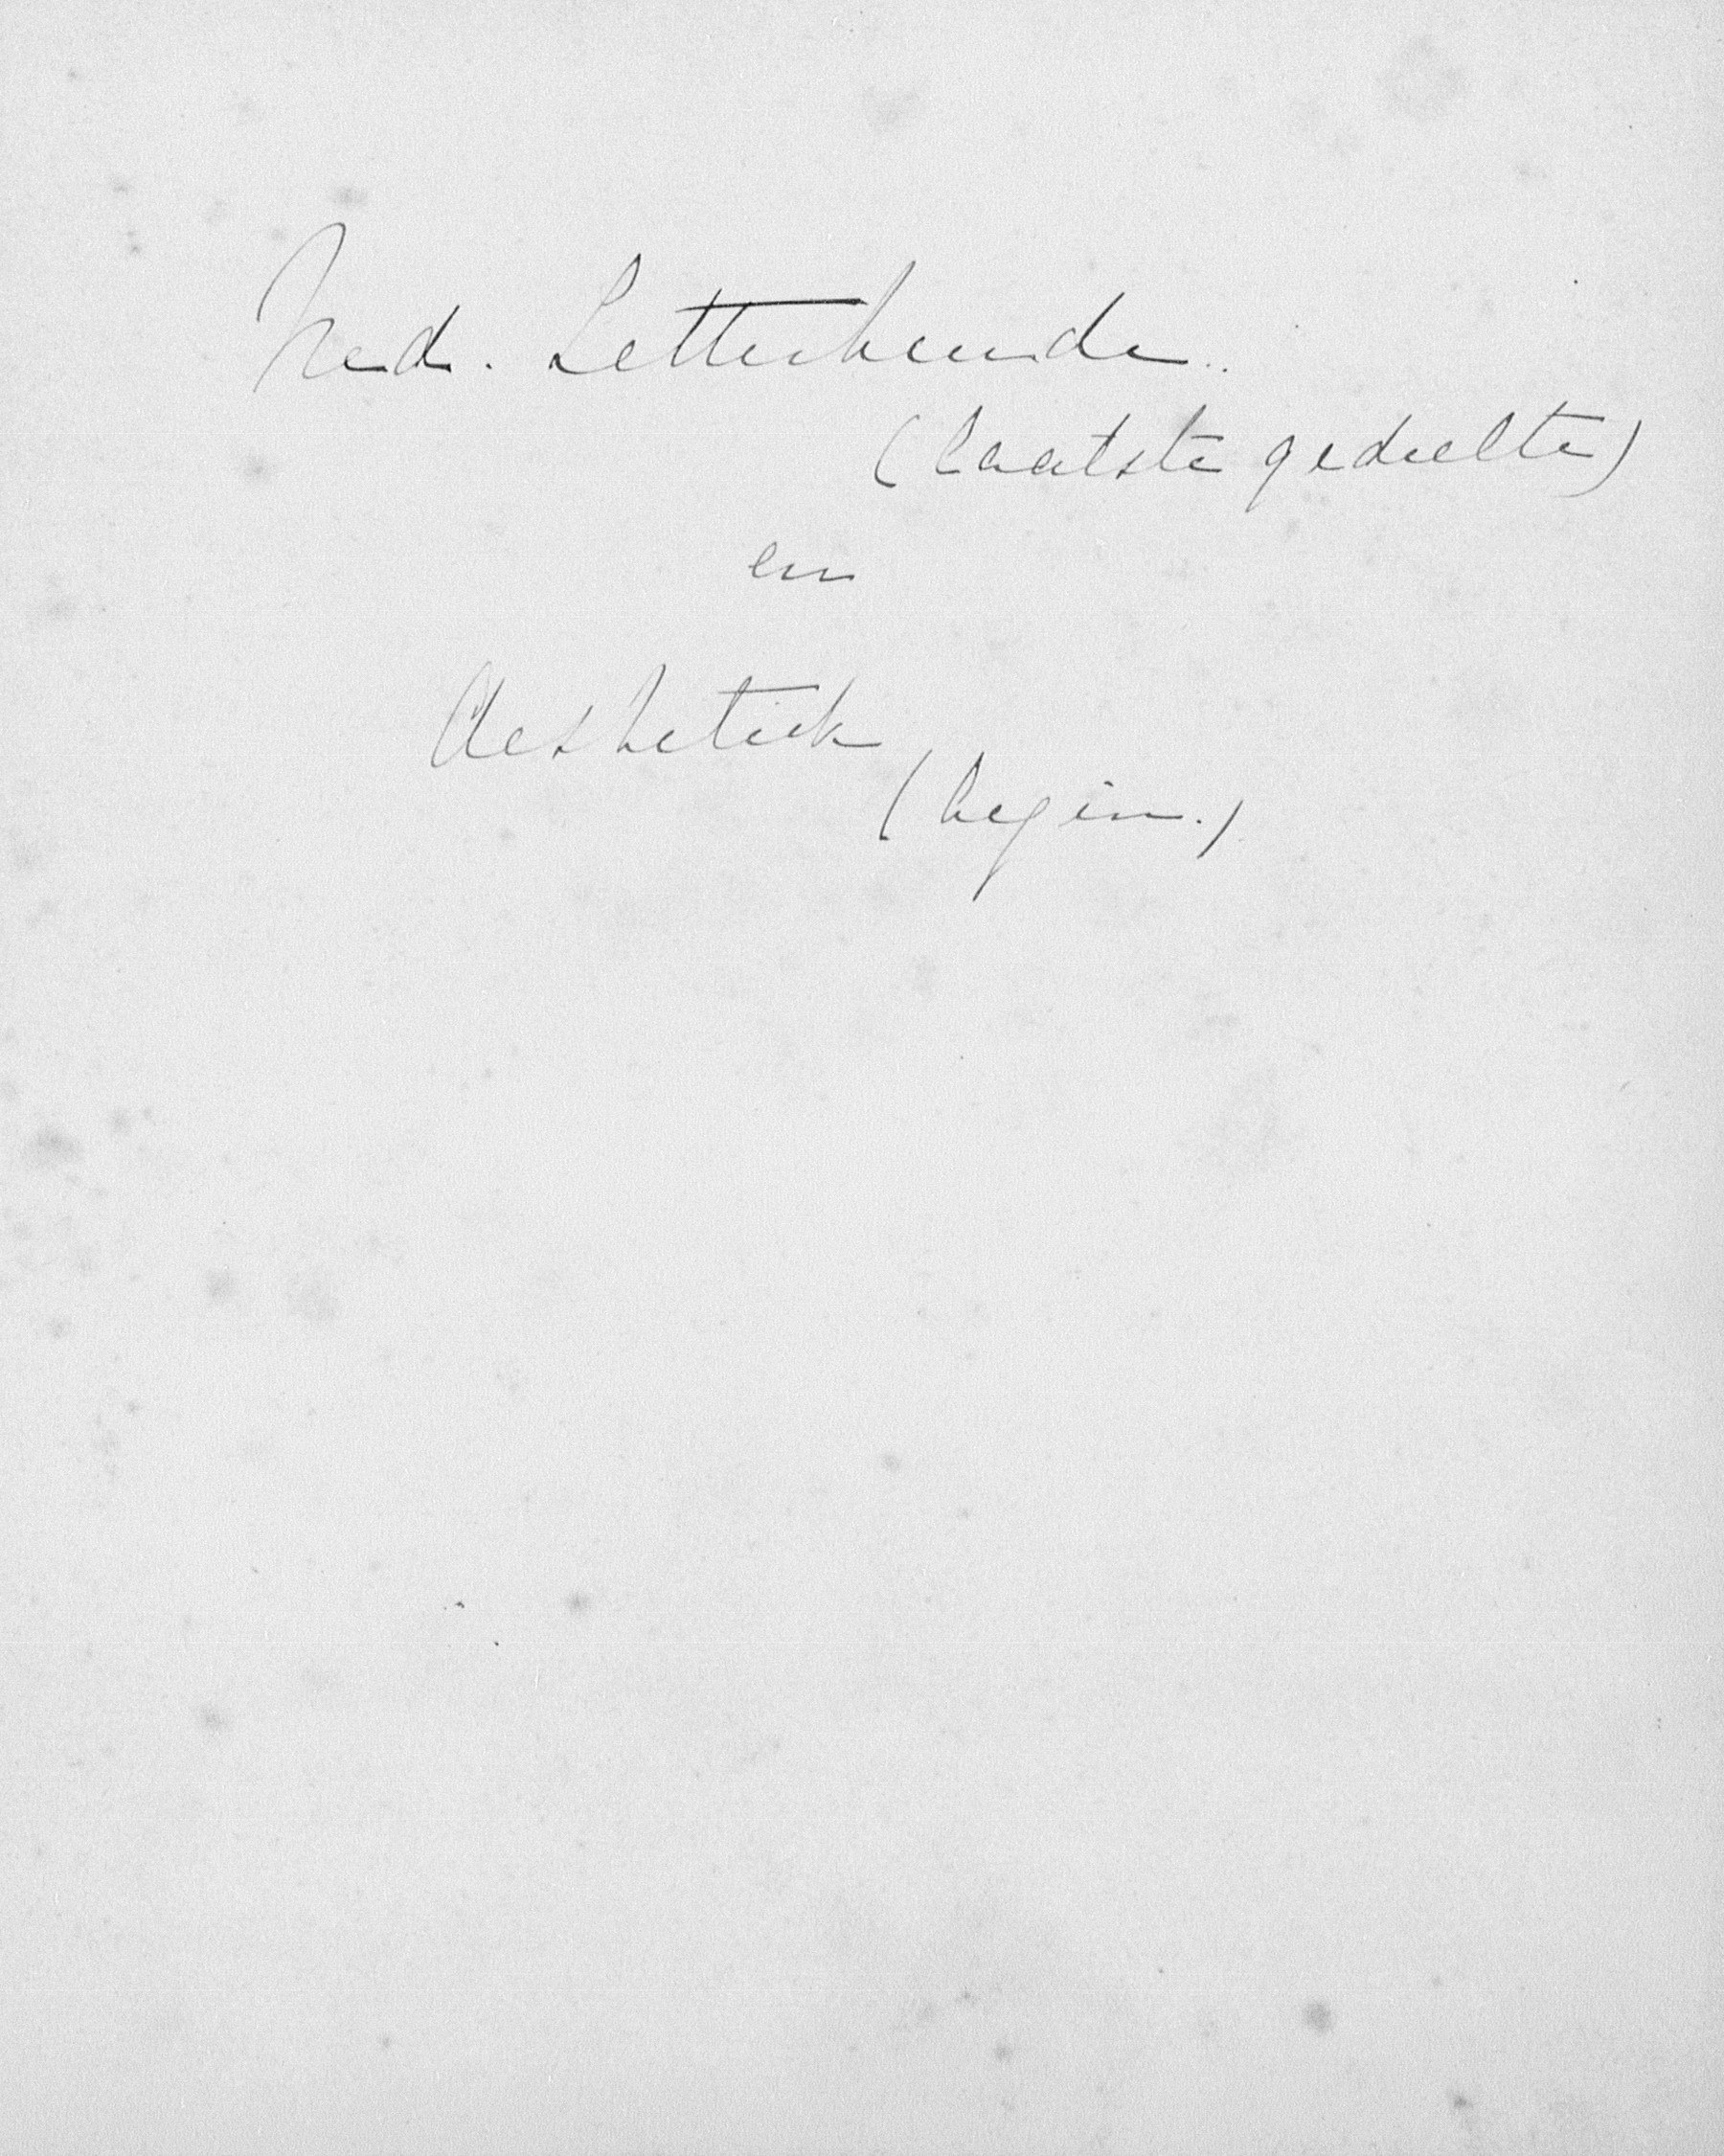 Ned. Letterkunde.
(laatste gedeelte)
en
Aesthetiek
(begin.)